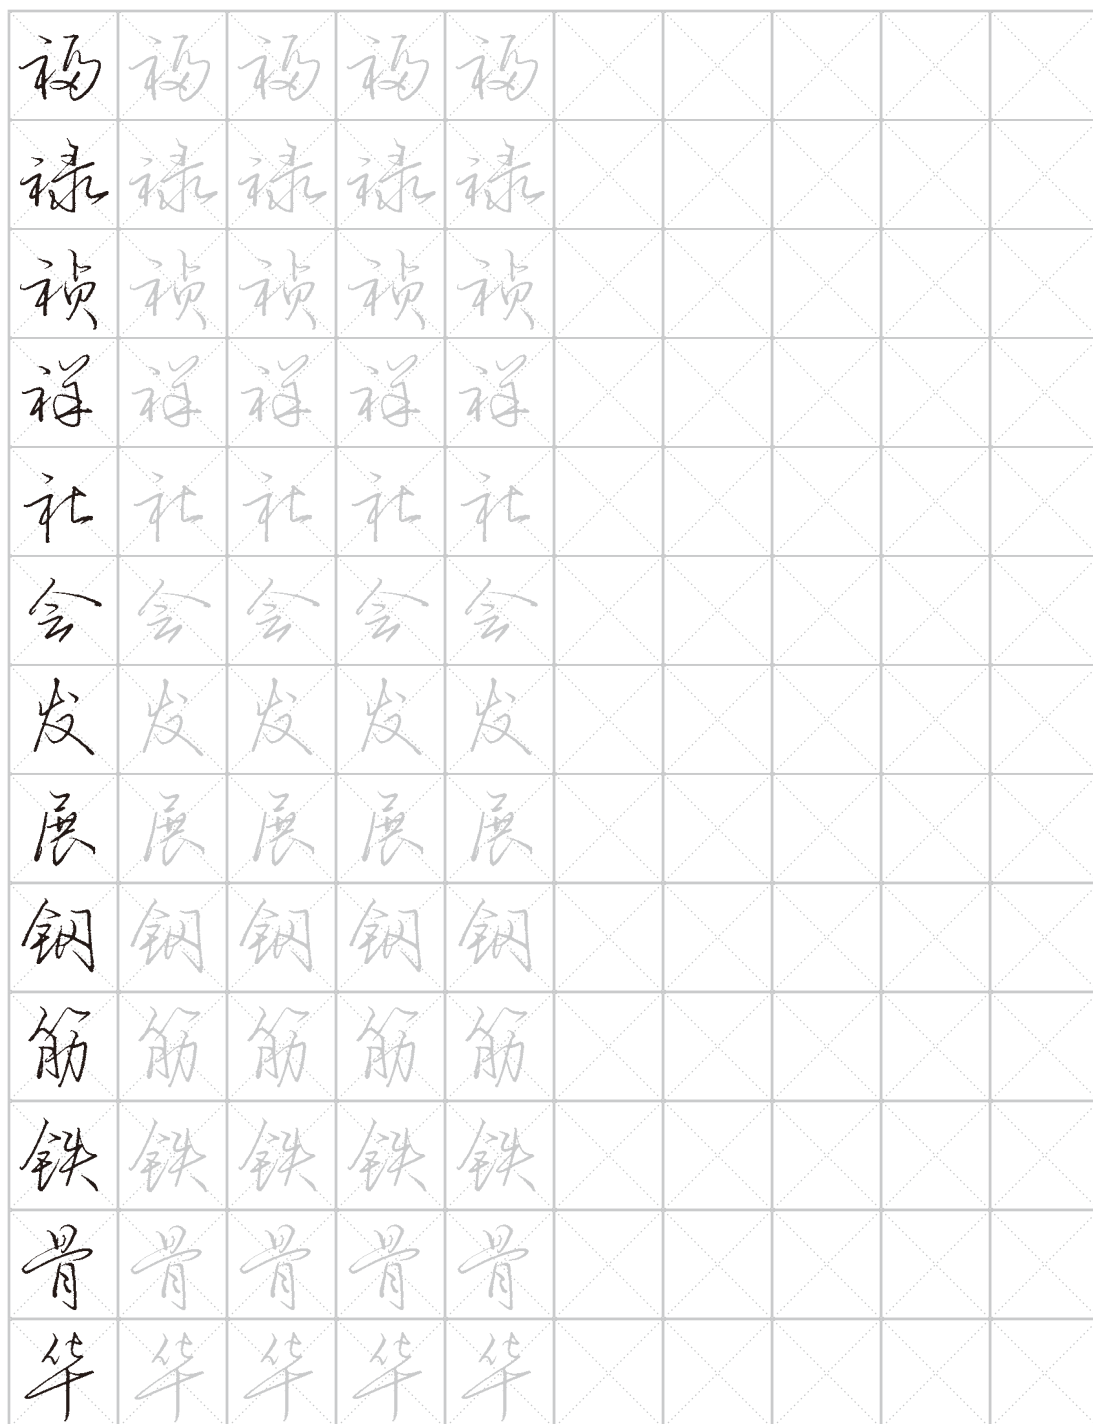 福福福福福
禄禄禄禄禄
祯祯祯祯祯
祥祥祥祥祥
社社社社社
会会会会会
发发发发发
展展展展展
钢钢钢钢钢
筋筋筋筋筋
铁铁铁铁铁
骨骨骨骨骨
华华华华华